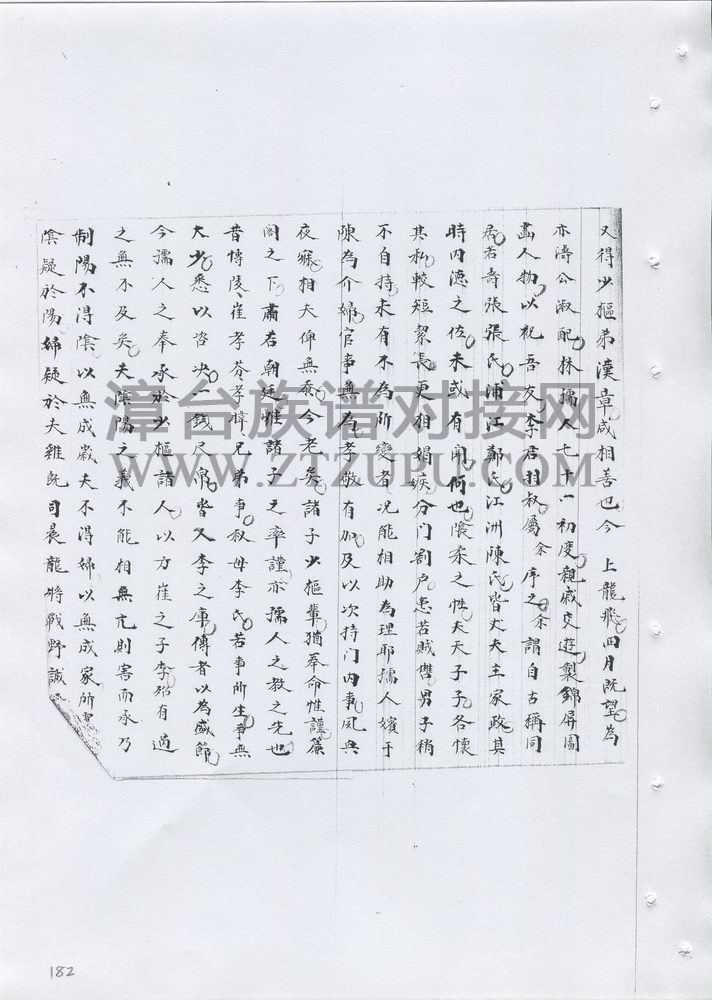 又得少樞弟漢章咸相善也今 上龍飛四月既望為
亦濤公淑配林孺人七十一初度親戚交遊製錦屏圖
畵人物以祝吾友李君羽叔屬余序之余謂自古稱同
居若壽張張氏浦江鄭氏江洲陳氏皆丈夫主家政其
時内德之佐未或有聞何也陰柔之性夫夫子子各懷
其私較短絜長更相媢嫉分门割户患若賊讐男子稍
不自持未有不為所變者况能相助為理耶孺人嬪于
陳為介婦官事無為孝敬有加及以次持门内事夙興
夜寐相夫俾無忝今老矣諸子少樞輩猶奉命惟謹簾
閤之下肅若朝廷惟諸子之率謹亦孺人之教之先也
昔博陵崔孝芬孝暐兄弟事叔母李氏若事所生事無
大少悉以咨决一錢尺帛皆入李之庫傳者以為盛節
今孺人之奉承於少樞諸人以方崔之子李殆有過
之無不及矣夫陰陽之義不能相無亢則害而承乃
制陽不得陰以無成歲夫不得婦以無成家所
陰疑於陽婦疑於夫雞既司晨龍將戰野誠
漳台族谱对接网
WWW.ZTZUPU.COM
182